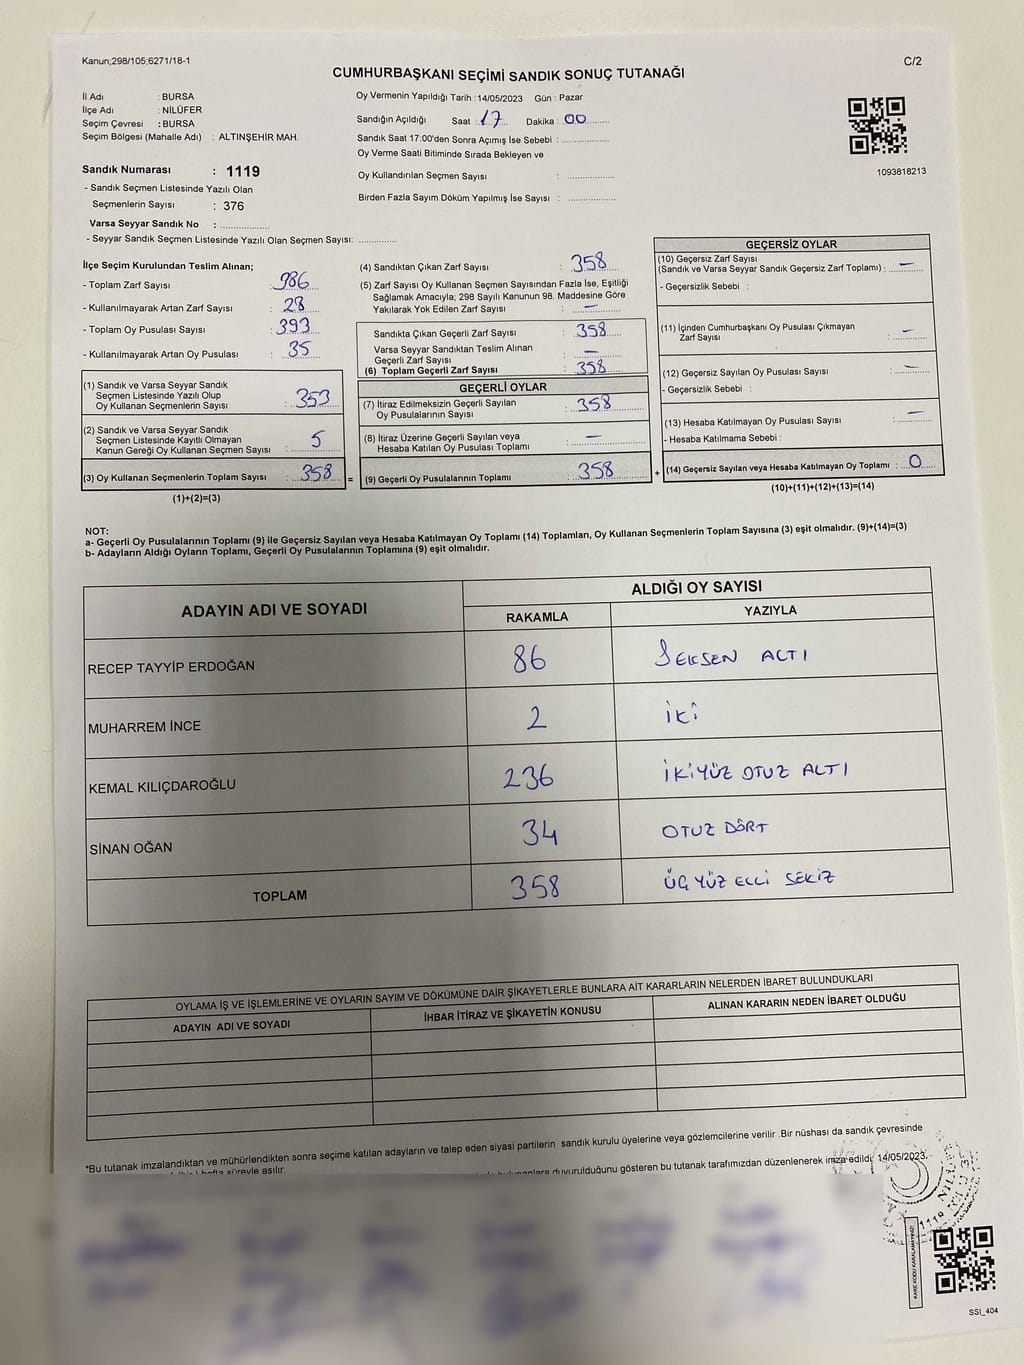 Kanun;298/105;6271/18-1
C/2
CUMHURBAŞKANI SEÇİMİ SANDIK SONUÇ TUTANAĞI
İl Adı : BURSA
İlçe Adı : NİLÜFER
Seçim Çevresi : BURSA
Seçim Bölgesi (Mahalle Adı) : ALTINŞEHİR MAH.
Sandık Numarası : 1119
- Sandık Seçmen Listesinde Yazılı Olan
Seçmenlerin Sayısı : 376
Varsa Seyyar Sandık No : ..............
- Seyyar Sandık Seçmen Listesinde Yazılı Olan Seçmen Sayısı: ............
Oy Vermenin Yapıldığı Tarih : 14/05/2023 Gün : Pazar
Sandığın Açıldığı Saat : 17 Dakika : 00
Sandık Saat 17:00'den Sonra Açımış İse Sebebi : ..............
Oy Verme Saati Bitiminde Sırada Bekleyen ve
Oy Kullandırılan Seçmen Sayısı : ..............
Birden Fazla Sayım Döküm Yapılmış İse Sayısı : ..............
1093818213
İlçe Seçim Kurulundan Teslim Alınan;
- Toplam Zarf Sayısı : 386
- Kullanılmayarak Artan Zarf Sayısı : 28
- Toplam Oy Pusulası Sayısı : 393
- Kullanılmayarak Artan Oy Pusulası : 35
(1) Sandık ve Varsa Seyyar Sandık
Seçmen Listesinde Yazılı Olup
Oy Kullanan Seçmenlerin Sayısı : 353
(2) Sandık ve Varsa Seyyar Sandık
Seçmen Listesinde Kayıtlı Olmayan
Kanun Gereği Oy Kullanan Seçmen Sayısı : 5
(3) Oy Kullanan Seçmenlerin Toplam Sayısı : 358 =
(1)+(2)=(3)
(4) Sandıktan Çıkan Zarf Sayısı : 358
(5) Zarf Sayısı Oy Kullanan Seçmen Sayısından Fazla İse, Eşitliği
Sağlamak Amacıyla; 298 Sayılı Kanunun 98. Maddesine Göre
Yakılarak Yok Edilen Zarf Sayısı : —
Sandıkta Çıkan Geçerli Zarf Sayısı : 358
Varsa Seyyar Sandıktan Teslim Alınan
Geçerli Zarf Sayısı : —
(6) Toplam Geçerli Zarf Sayısı : 358
GEÇERLİ OYLAR
(7) İtiraz Edilmeksizin Geçerli Sayılan
Oy Pusulalarının Sayısı : 358
(8) İtiraz Üzerine Geçerli Sayılan veya
Hesaba Katılan Oy Pusulası Toplamı : —
(9) Geçerli Oy Pusulalarının Toplamı : 358 +
GEÇERSİZ OYLAR
(10) Geçersiz Zarf Sayısı
(Sandık ve Varsa Seyyar Sandık Geçersiz Zarf Toplamı) : —
- Geçersizlik Sebebi :
(11) İçinden Cumhurbaşkanı Oy Pusulası Çıkmayan
Zarf Sayısı : —
(12) Geçersiz Sayılan Oy Pusulası Sayısı : —
- Geçersizlik Sebebi :
(13) Hesaba Katılmayan Oy Pusulası Sayısı : —
- Hesaba Katılmama Sebebi :
(14) Geçersiz Sayılan veya Hesaba Katılmayan Oy Toplamı : 0
(10)+(11)+(12)+(13)=(14)
NOT:
a- Geçerli Oy Pusulalarının Toplamı (9) ile Geçersiz Sayılan veya Hesaba Katılmayan Oy Toplamı (14) Toplamları, Oy Kullanan Seçmenlerin Toplam Sayısına (3) eşit olmalıdır. (9)+(14)=(3)
b- Adayların Aldığı Oyların Toplamı, Geçerli Oy Pusulalarının Toplamına (9) eşit olmalıdır.
ADAYIN ADI VE SOYADI
ALDIĞI OY SAYISI
RAKAMLA YAZIYLA
RECEP TAYYİP ERDOĞAN 86 SEKSEN ALTI
MUHARREM İNCE 2 İKİ
KEMAL KILIÇDAROĞLU 236 İKİYÜZ OTUZ ALTI
SİNAN OĞAN 34 OTUZ DÖRT
TOPLAM 358 ÜÇYÜZ ELLİ SEKİZ
OYLAMA İŞ VE İŞLEMLERİNE VE OYLARIN SAYIM VE DÖKÜMÜNE DAİR ŞİKAYETLERLE BUNLARA AİT KARARLARIN NELERDEN İBARET BULUNDUKLARI
ADAYIN ADI VE SOYADI İHBAR İTİRAZ VE ŞİKAYETİN KONUSU ALINAN KARARIN NEDEN İBARET OLDUĞU
*Bu tutanak imzalandıktan ve mühürlendikten sonra seçime katılan adayların ve talep eden siyasi partilerin sandık kurulu üyelerine veya gözlemcilerine verilir .Bir nüshası da sandık çevresinde
hafta süreyle asılır.
duyurulduğunu gösteren bu tutanak tarafımızdan düzenlenerek imza edildi. 14/05/2023.
1119
KARE KODU KARALAMAYINIZ!
SSI_404